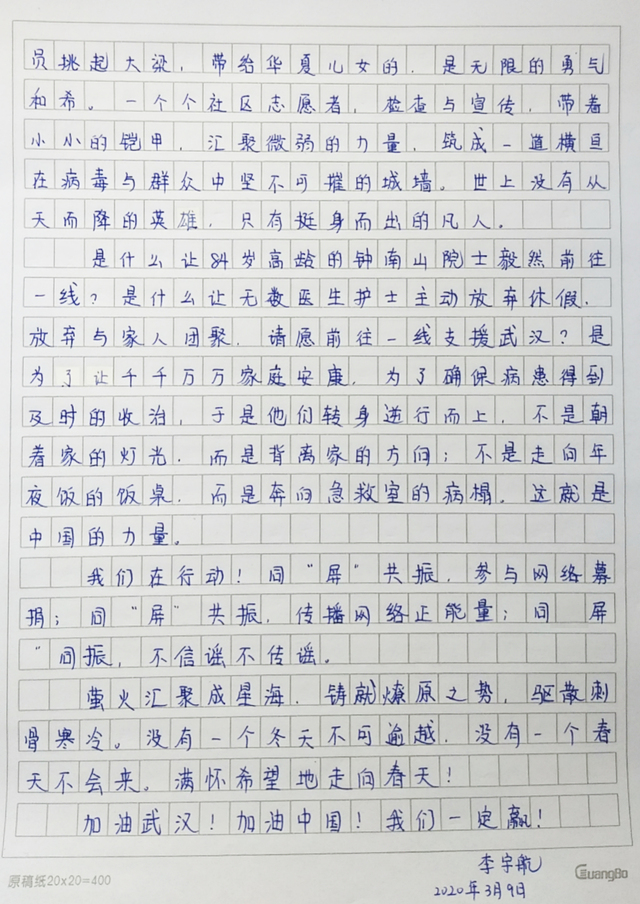 员挑起大梁，带给华夏儿女的，是无限的勇气
和希。一个个社区志愿者，检查与宣传，带着
小小的铠甲，汇聚微弱的力量，筑成一道横亘
在病毒与群众中坚不可摧的城墙。世上没有从
天而降的英雄，只有挺身而出的凡人。
是什么让84岁高龄的钟南山院士毅然前往
一线？是什么让无数医生护士主动放弃休假，
放弃与家人团聚，请愿前往一线支援武汉？是
为了让千千万万家庭安康，为了确保病患得到
及时的收治，于是他们转身逆行而上，不是朝
着家的灯光，而是背离家的方向；不是走向年
夜饭的饭桌，而是奔向急救室的病榻。这就是
中国的力量。
我们在行动！同“屏”共振，参与网络募
捐；同“屏”共振，传播网络正能量；同 屏
”同振，不信谣不传谣。
萤火汇聚成星海，铸就燎原之势，驱散刺
骨寒冷。没有一个冬天不可逾越，没有一个春
天不会来。满怀希望地走向春天！
加油武汉！加油中国！我们一定赢！
李宇航
2020年3月9日
原稿纸20x20=400
GuangBo